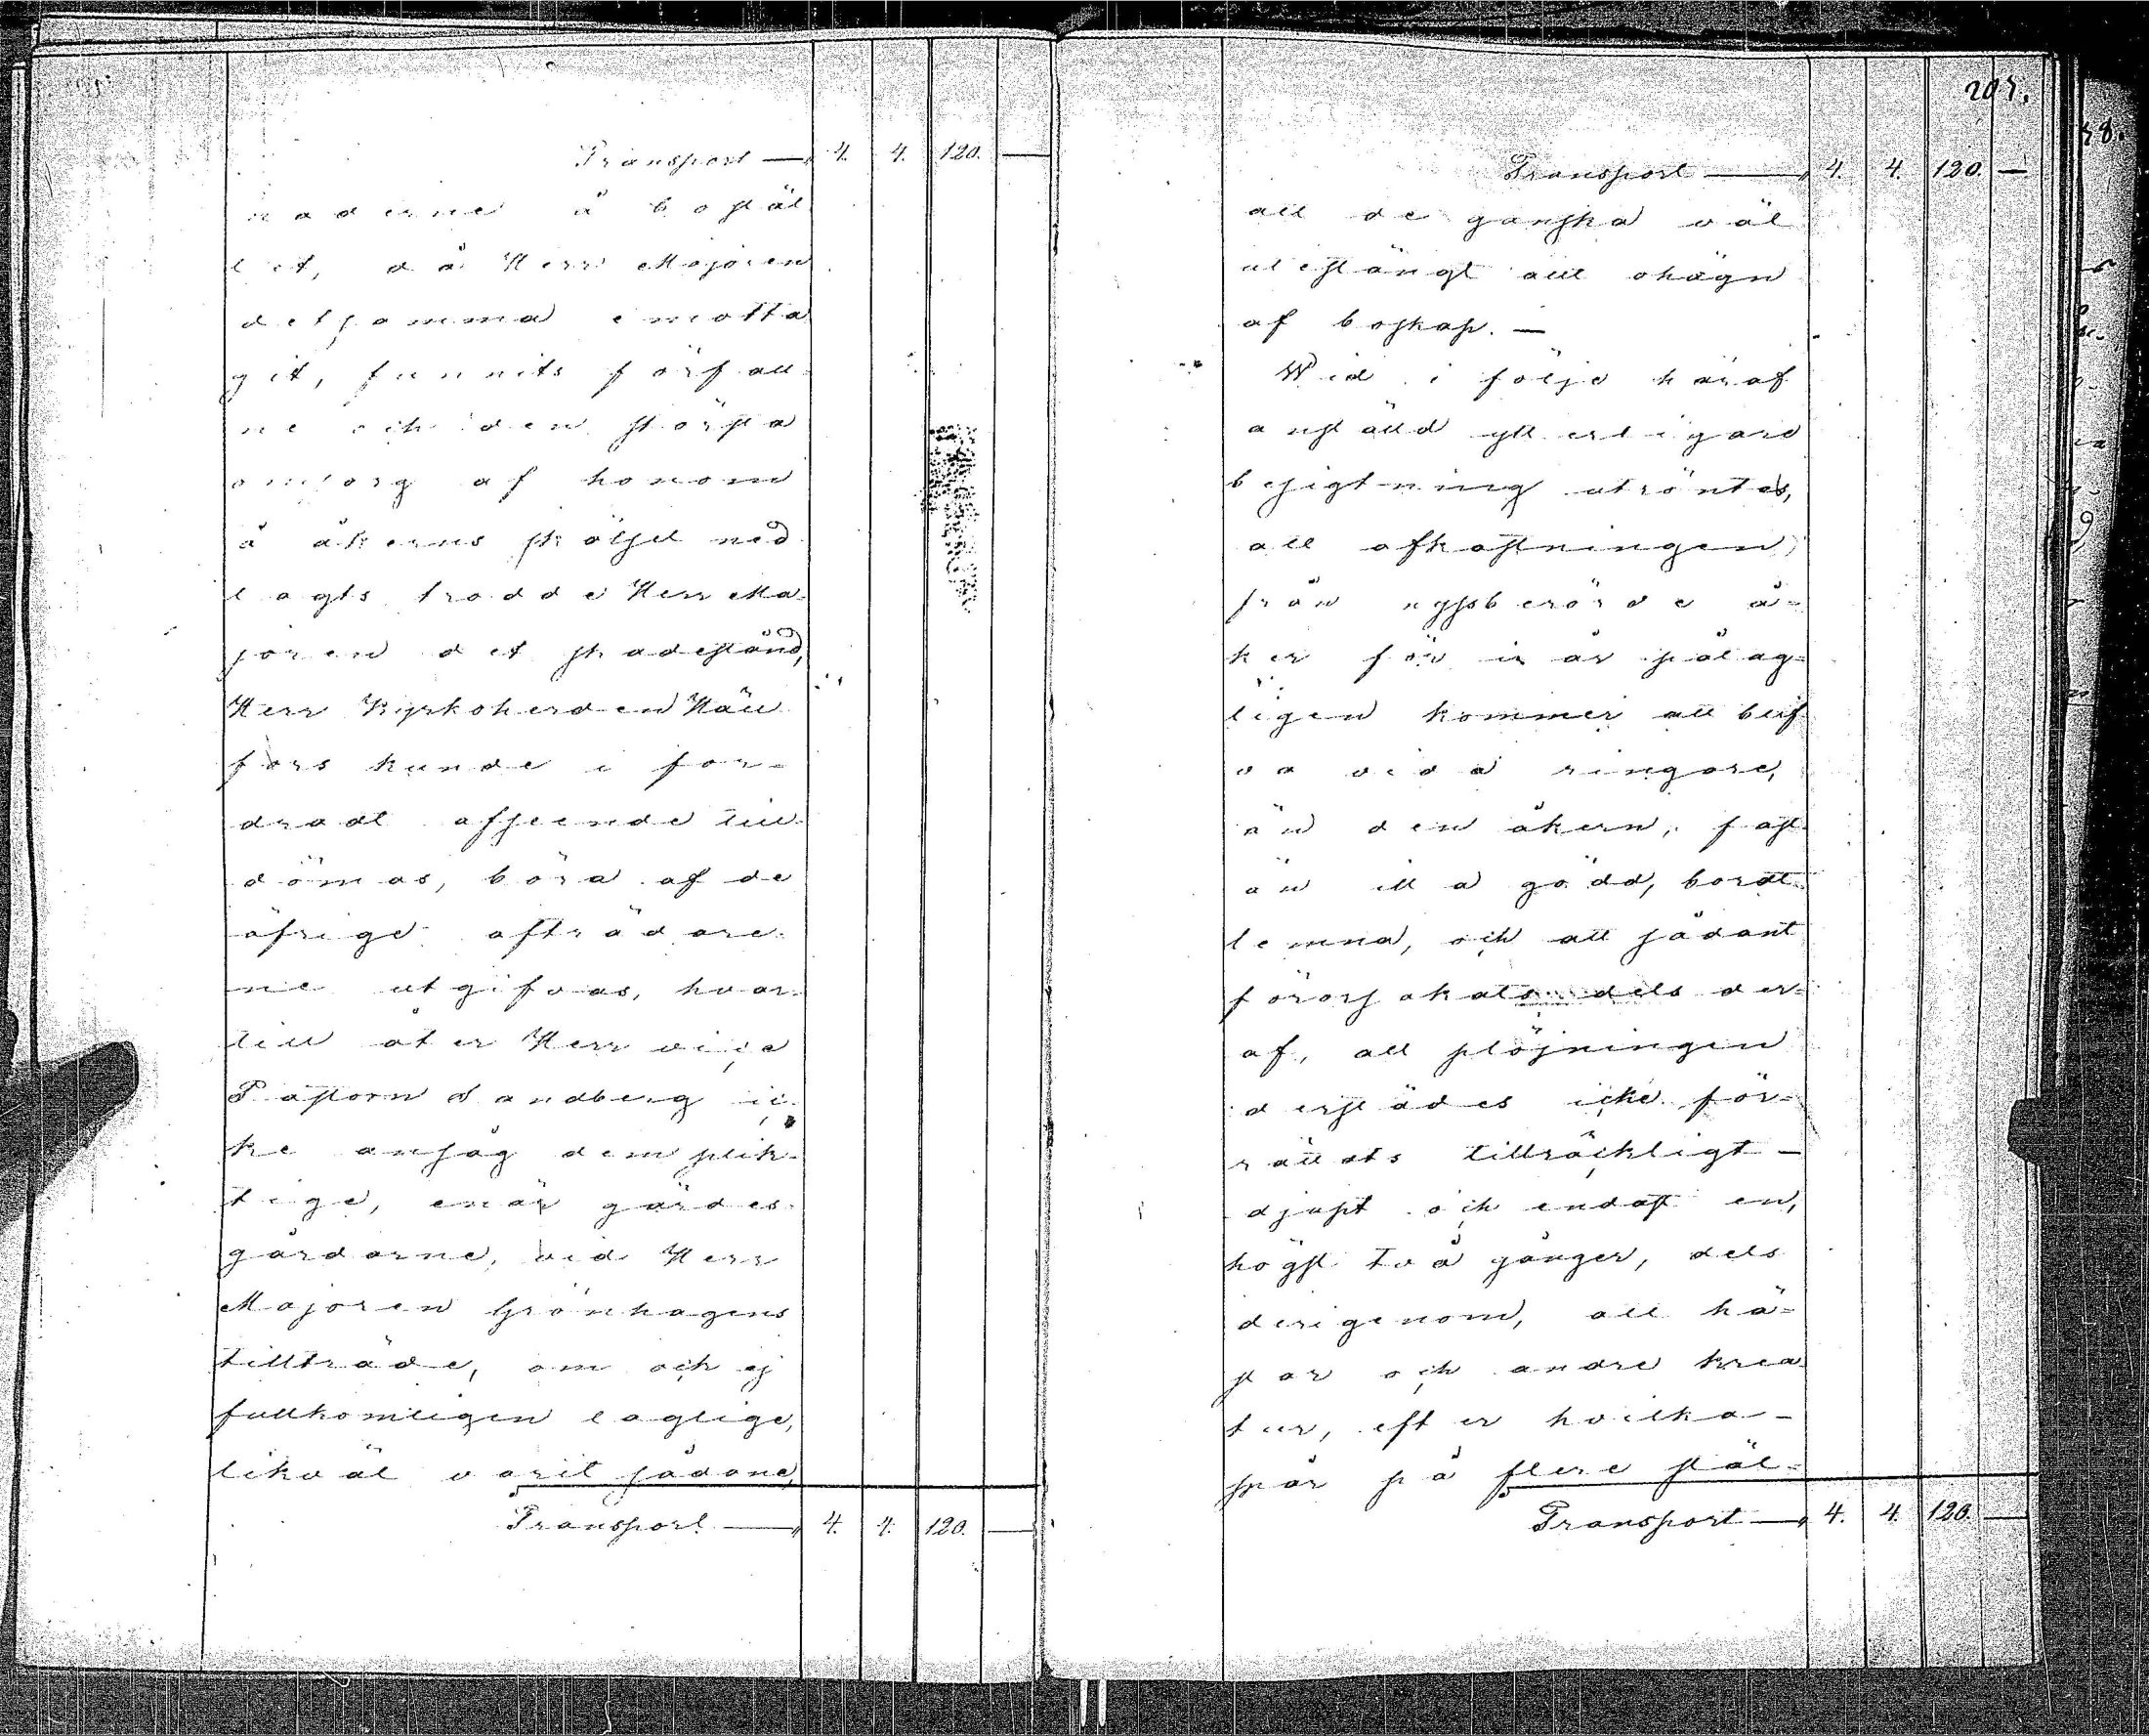 Transport — " 4. 4. 120. —
naderne å bostäl
let, då Herr Majoren
detsamma emotta
git, funnits förfall
ne och den största
omsorg af honom
å åkerns skötsel ned
lagts trodde Herr Ma-
joren det skadestånd,
Herr Kyrkoherden Häll
fors kunde i for-
dradt afseende till
dömas, böra af de
öfrige afträdare
ne utgifvas, hvar
till åter Herr vice
Pastorn Sandberg ic
ke ansåg dem plik
tige, enär gärdes
gårdarne, vid Herr
Majoren Grönhagens
tillträde, om och ej
fullkomligen laglige,
likväl varit sådane,
Transport — " 4. 4. 120. —
205.
Transport — " 4. 4. 120. —
att de ganska väl
utestängt allt ohägn
af boskap. —
Wid i följe häraf
anställd ytterligare
besigtning utröntes,
att afkastningen
från nyssberörde å-
ker för i år påtag-
ligen kommer att blif
va vida ringare,
än den åkern, fast
än illa gödd, bordt
lemna, och att sådant
förorsakats dels der-
af, att plöjningen
derstädes icke för-
rättats tillräckligt –
djupt och endast en,
högst två gånger, dels
derigenom, att hä-
star och andre krea
tur, efter hvilka –
spår på flere stäl-
Transport — " 4. 4. 120. —